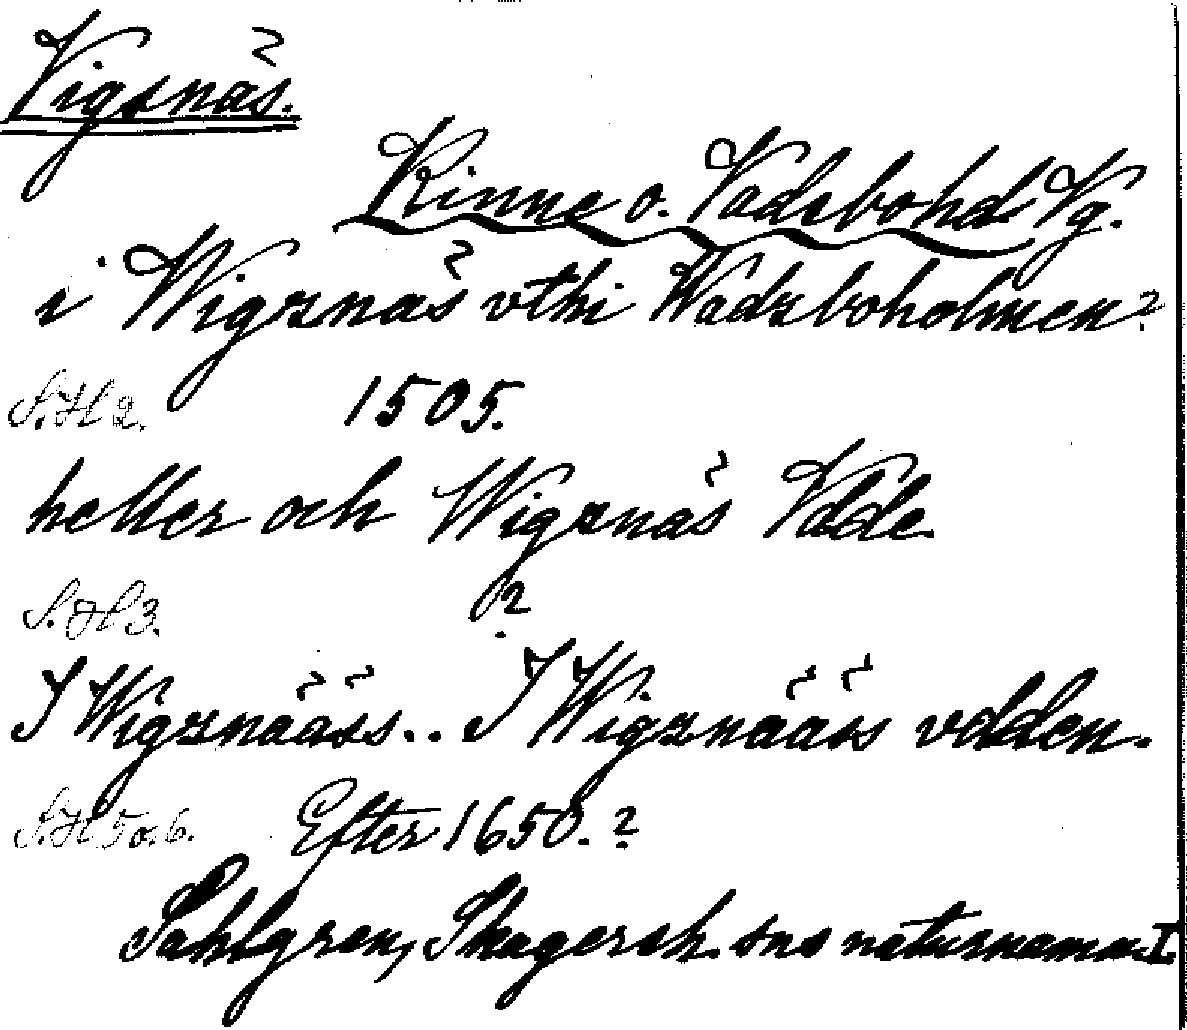 Vigsnäs.
Kinne o. Vadsbohd Vg.
i Wigsnäs vthi Wadzboholmen?
S.H 2. 1505.
heller och Wigsnäs Vdde.
S.H 3. ?
I Wigznääss.. I Wigznääss vdden.
S.H 5 o. 6. Efter 1650. ?
Sahlgren, Skagersh. sns naturnamn I.